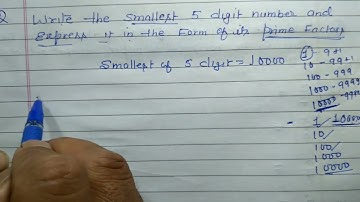 Q Write the smallest 5 digit number and
express it in the form of its prime factors
Smallest of 5 digit = 10000
1 - 9+1
10 - 99+1
100 - 999
1000 - 9999
10000 -
- 1 / 10000
10/
100/
1000
10000